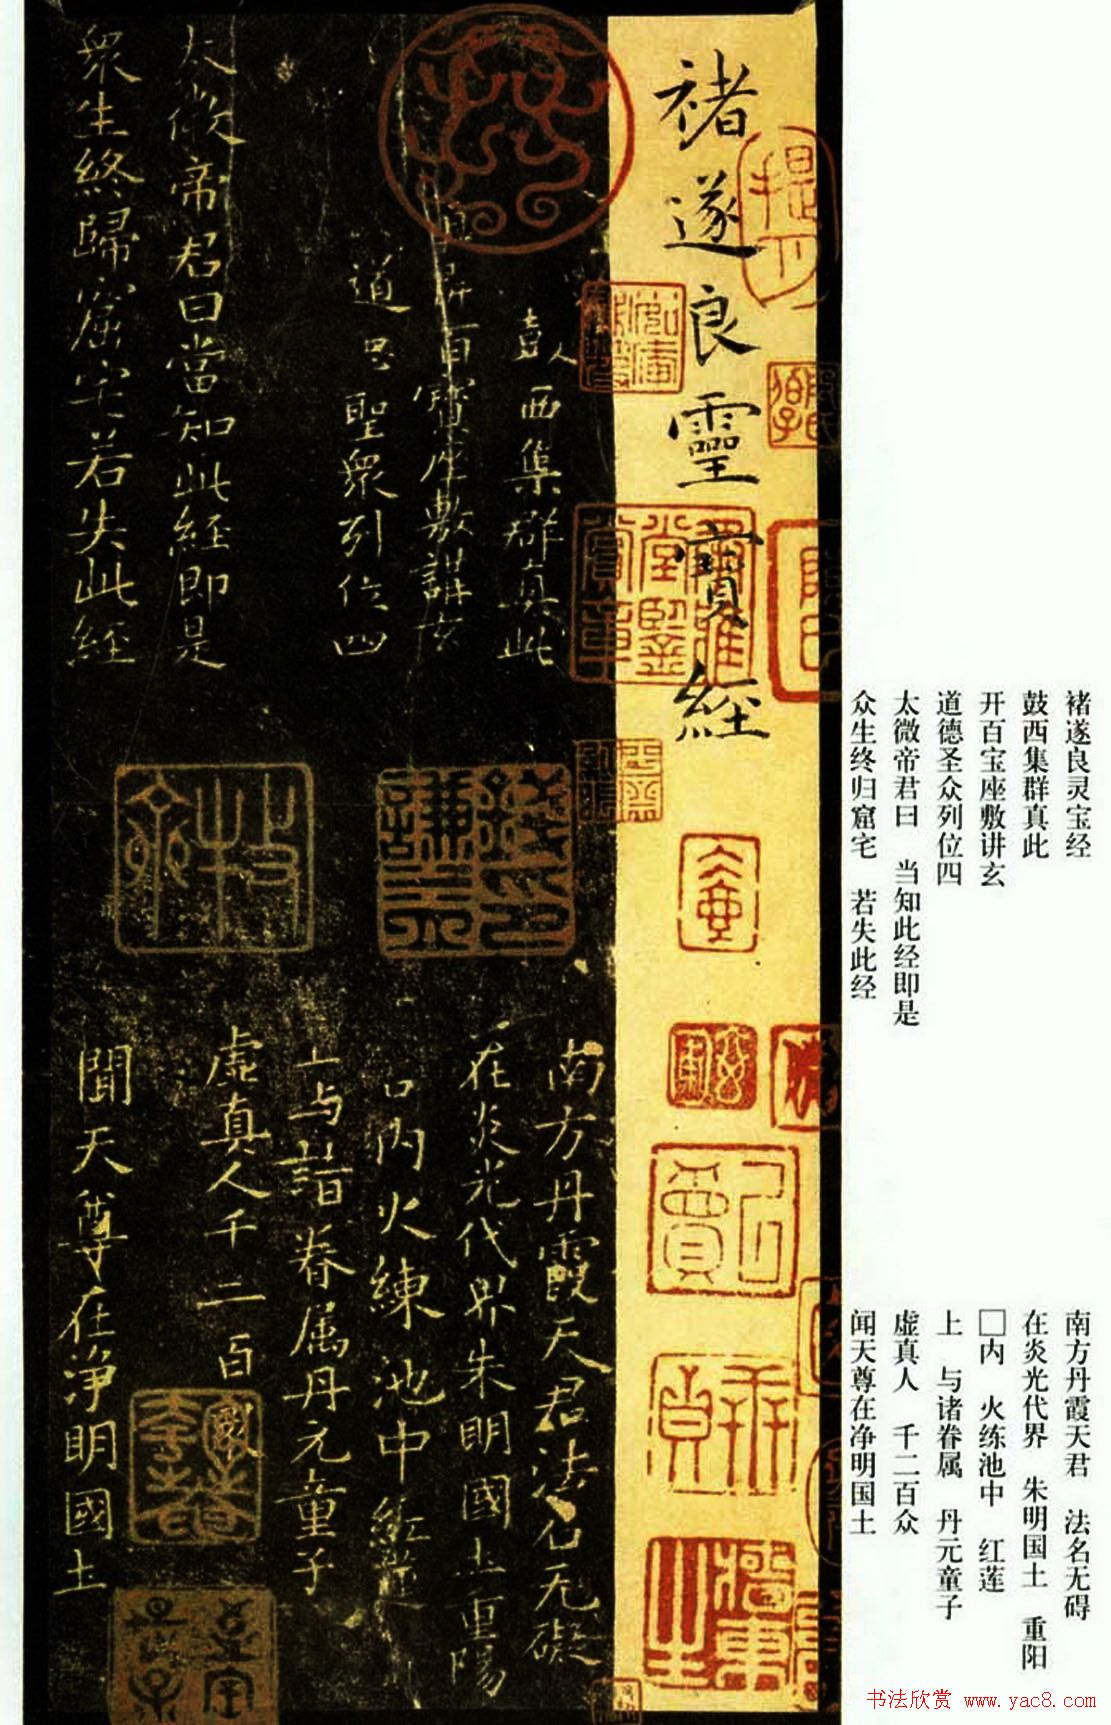 褚遂良靈寶經
鼓西集群真此
開百寶座敷講玄
道德聖眾列位四
太微帝君曰當知此經即是
眾生終歸窟宅若失此經
南方丹霞天君法名无礙
在炎光代界朱明國土重陽
内火練池中紅蓮
上与諸眷属丹元童子
虛真人千二百眾
聞天尊在淨明國土
褚遂良灵宝经
鼓西集群真此
开百宝座敷讲玄
道德圣众列位四
太微帝君曰 当知此经即是
众生终归窟宅 若失此经
南方丹霞天君 法名无碍
在炎光代界 朱明国土 重阳
□内 火练池中 红莲
上 与诸眷属 丹元童子
虚真人 千二百众
闻天尊在净明国土
书法欣赏 www.yac8.com